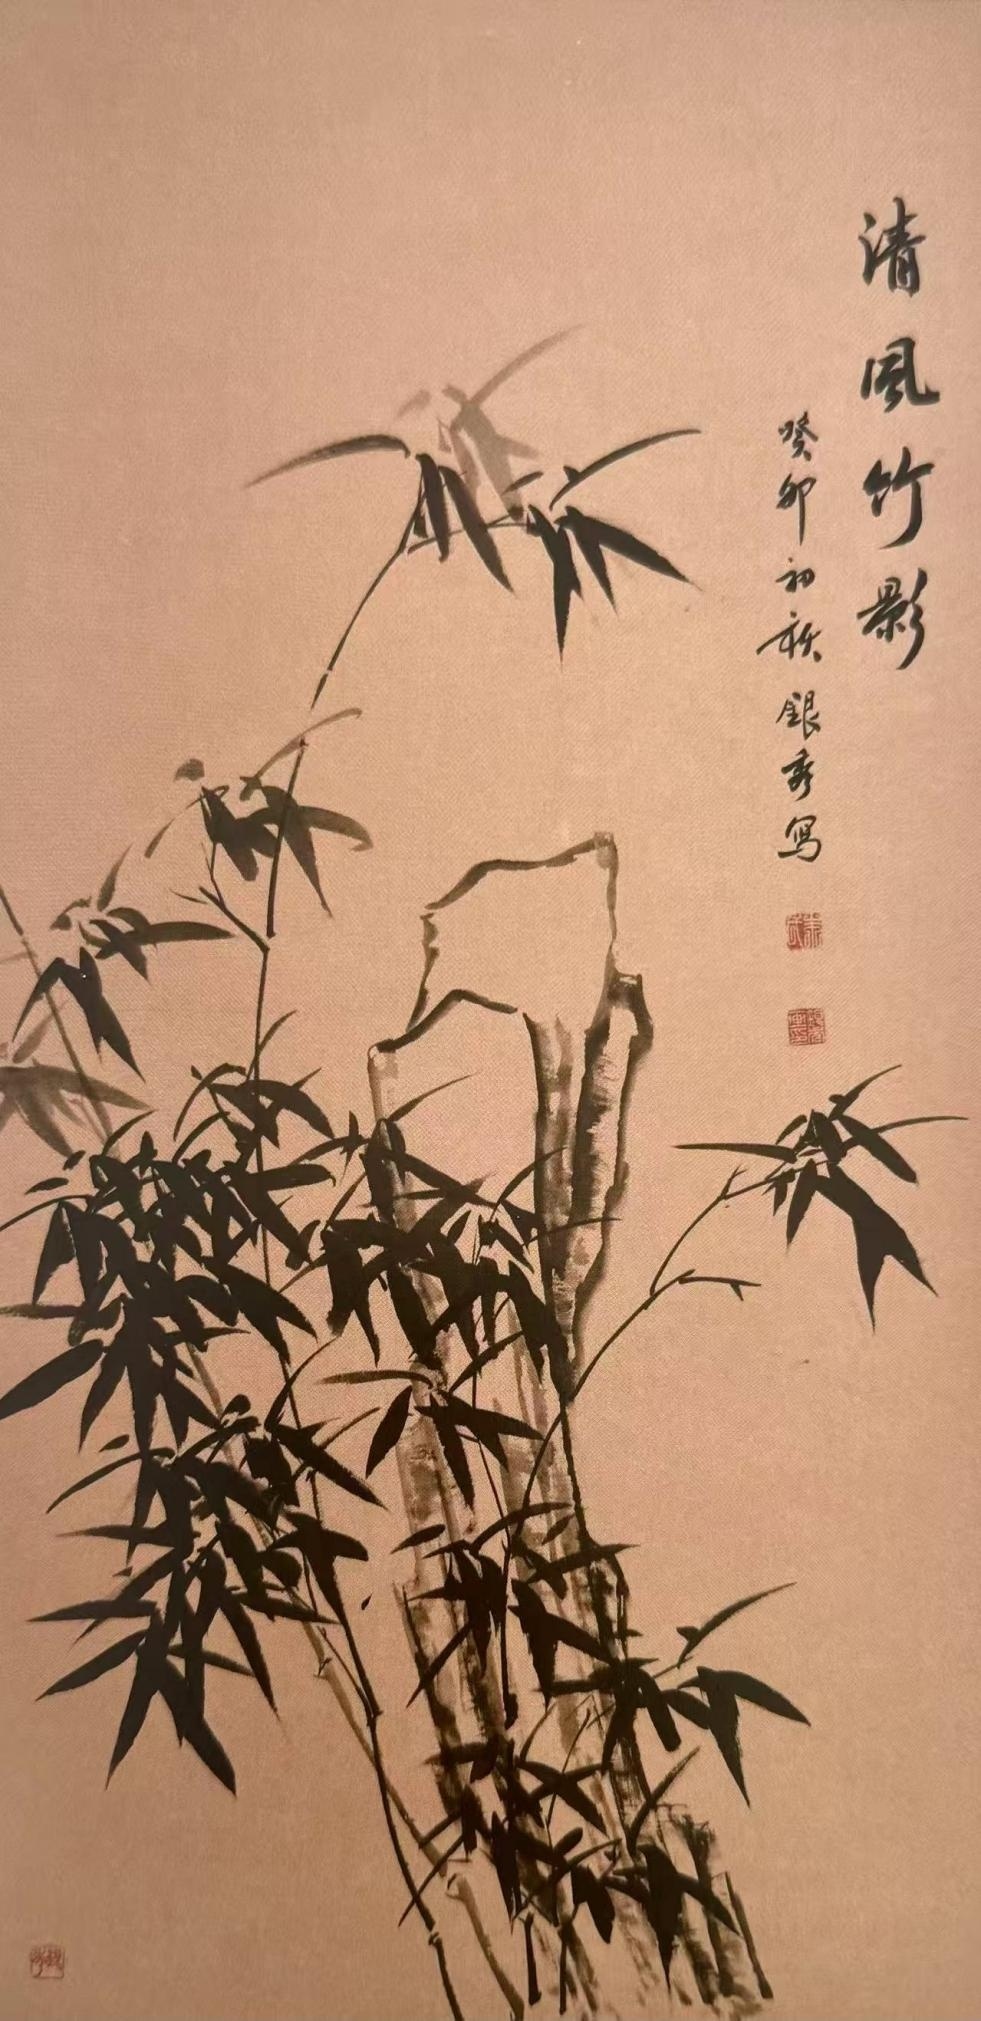 清風竹影
癸卯初秋銀秀寫